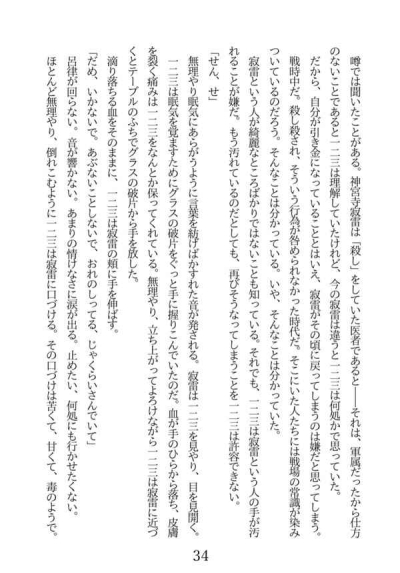 噂では聞いたことがある。神宮寺寂雷は「殺し」をしていた医者であると――それは、軍属だったから仕方
のないことであると一二三は理解していたけれど、今の寂雷は違うと一二三は何処かで思っていた。
だから、自分が引き金になっていることとはいえ、寂雷がその頃に戻ってしまうのは嫌だと思ってしまう。
戦時中だ。殺し殺され、そういう行為が咎められなかった時代だ。そこにいた人たちには戦場の常識が染み
ついているのだろう。そんなことは分かっている。いや、そんなことは分かっていた。
寂雷という人が綺麗なところばかりではないことも知っている。それでも、一二三は寂雷という人の手が汚
れることが嫌だ。もう汚れているのだとしても、再びそうなってしまうことを一二三は許容できない。
「せん、せ」
無理やり眠気にあらがうように言葉を紡げばかすれた音が発される。寂雷は一二三を見やり、目を見開く。
一二三は眠気を覚ますためにグラスの破片をぐっと手に握りこんでいたのだ。血が手のひらから落ち、皮膚
を裂く痛みは一二三をなんとか保ってくれている。無理やり、立ち上がってよろけながら一二三は寂雷に近づ
くとテーブルのふちでグラスの破片から手を放した。
滴り落ちる血をそのままに、一二三は寂雷の頬に手を伸ばす。
「だめ、いかないで。あぶないことしないで、おれのしってる、じゃくらいさんでいて」
呂律が回らない。音が響かない。あまりの情けなさに涙が出る。止めたい、何処にも行かせたくない。
ほとんど無理やり、倒れこむように一二三は寂雷に口づける。その口づけは苦くて、甘くて、毒のようで。
34